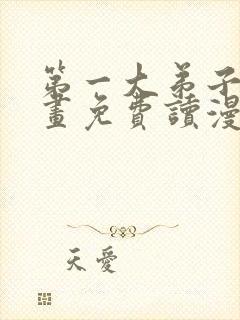 第一大弟子
畫免費讀漫
天愛